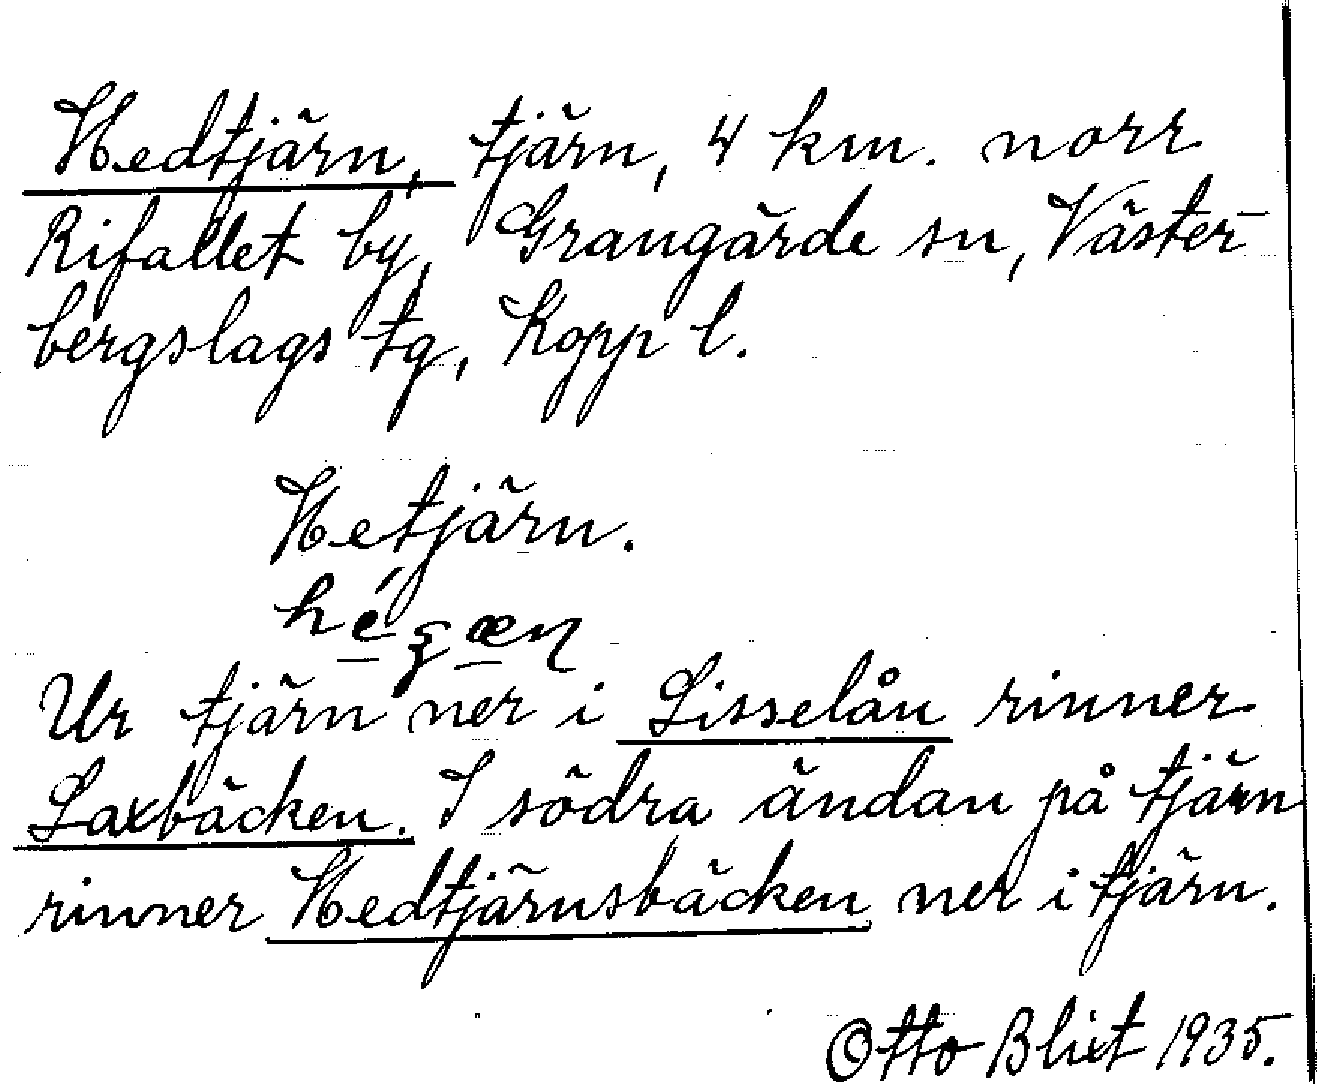 Hedtjärn, tjärn, 4 km. norr
Rifallet by, Grangärde sn, Väster-
bergslags tg, Kopp l.
Hetjärn.
Ur tjärn ner i Lisselån rinner
Laxbäcken. I södra ändan på tjärn
rinner Hedtjärnsbäcken ner i tjärn.
Otto Blixt 1935.